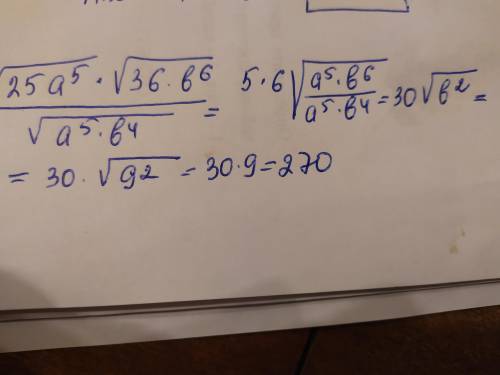 √25a⁵ · √36·b⁶ / √a⁵·b⁴ = 5·6√a⁵·b⁶/a⁵·b⁴ = 30√b² =
= 30·√9² = 30·9=270